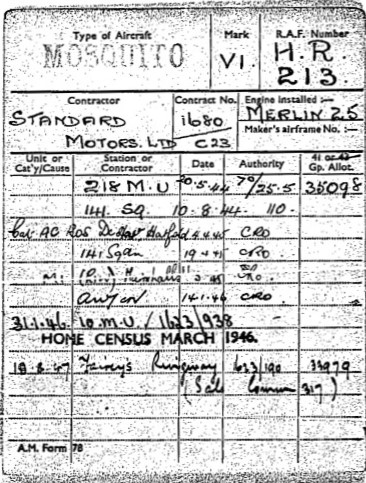 Type of Aircraft
Mark
R.A.F. Number
MOSQUITO
VI.
H.R.
213.
Contractor
Contract No.
Engine installed :—
STANDARD
MOTORS. LTD
1680
C23
MERLIN 25
Maker's airframe No. :—
Unit or Cat'y/Cause
Station or Contractor
Date
Authority
41 or 43 Gp. Allot.
218 M.U 20.5.44 70/25.5 35098
141. SQ. 10.8.44. 110.
Cat. AC ROS De Hav Hatfield 4.4.45 CRO
141 Sqdn CRO
14.1.46 CRO
31.1.46. 10.M.U. / 1623/938
HOME CENSUS MARCH 1946.
19.8.47 Fairey's Ringway 1623/190 33979
(Sale Comm 317)
A.M. Form 78